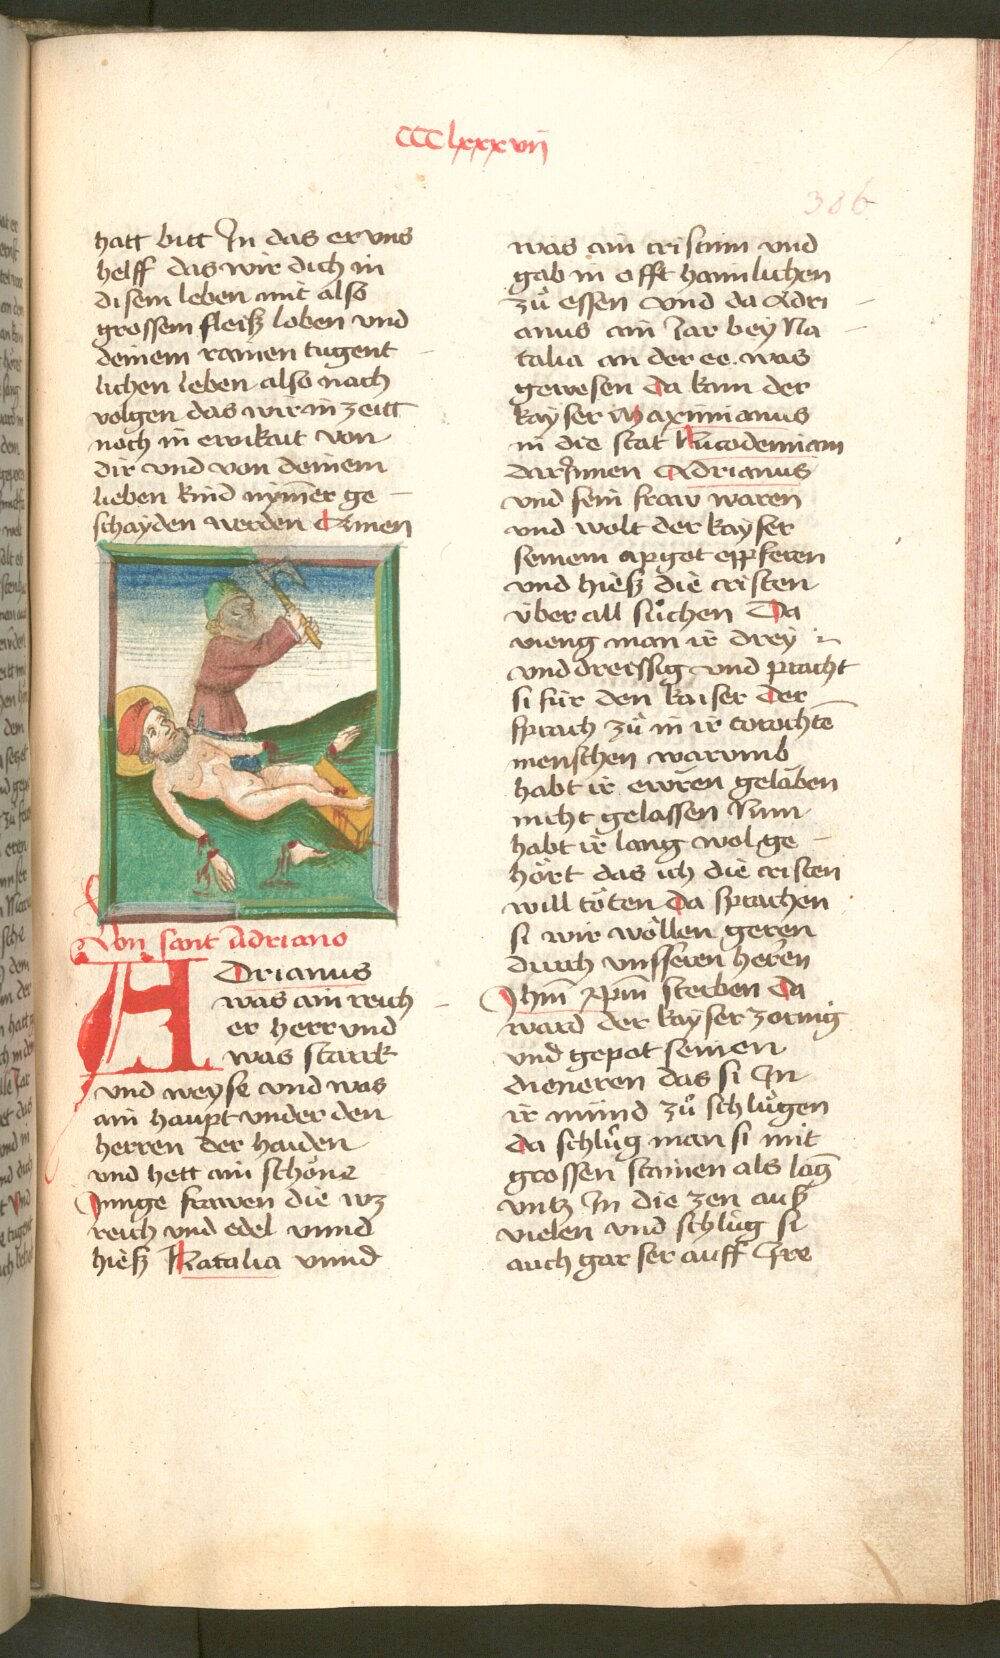 CCClxxxvij
386
hatt bitt Jn das er vns
helff das wir dich in
disem leben mit also
grossem fleiß loben vnd
deinem rainen tugent
lichen leben also nach
volgen das wir in zeitt
noch in ewikait von
dir vnd von deinem
lieben kind nym̄er ge
schayden werden Amen
Von sant Adriano
ADrianus
was ain reich
er herr vnd
was starck
vnd weyse vnd was
ain haupt vnder den
herren der haiden
vnd hett ain schöne
Junge frawen die wz
reich vnd edel vnnd
hieß Natalia vnnd
was ain cristinn vnd
gab in offt haimlichen
zů essen vnd da Adri
anus ain Jar bey Na
talia an der ee was
gewesen da kam der
kayser Maximianus
in die stat Nicodemiam
darJnnen Adrianus
vnd sein fraw waren
vnd wolt der kayser
seinem apgot opfferen
vnd hieß die cristen
über all sůchen Da
vieng man ir drey
vnd dreissig vnd pracht
si für den kaiser Der
sprach zů in ir torochtē
menschen warumb
habt ir ewren gelaben
nicht gelassen Nun
habt ir lang wol ge
hört das ich die cristen
will töten Da sprachen
si wir wöllen geren
durch vnsseren heren
Jhm̄ xp̄m sterben Da
ward der kayser zornig
vnd gepot seinen
dieneren das si Jn
ir mund zů schlügen
da schlůg man si mit
grossen stainen als lāg
vntz Jn die zen auß
vielen vnd schlůg si
auch gar ser auff Jre